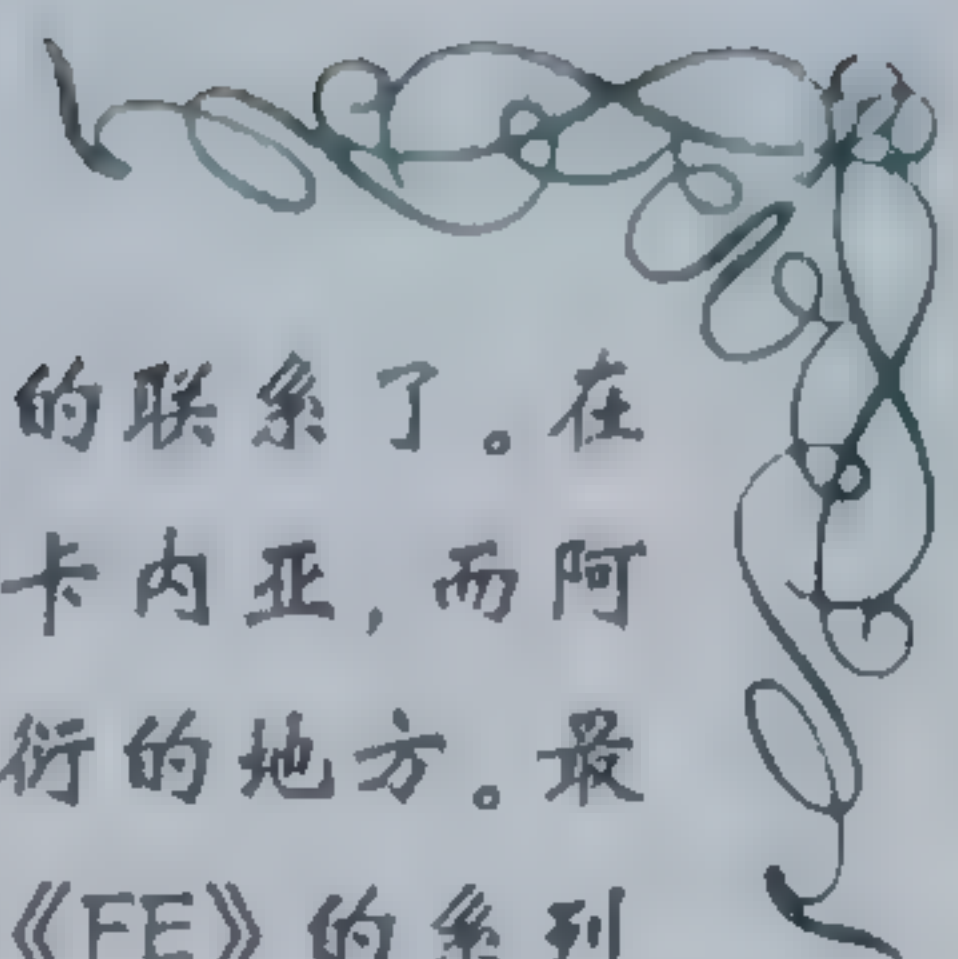 的联系了。在
卡内亚，而阿
衍的地方。最
《FE》的系列